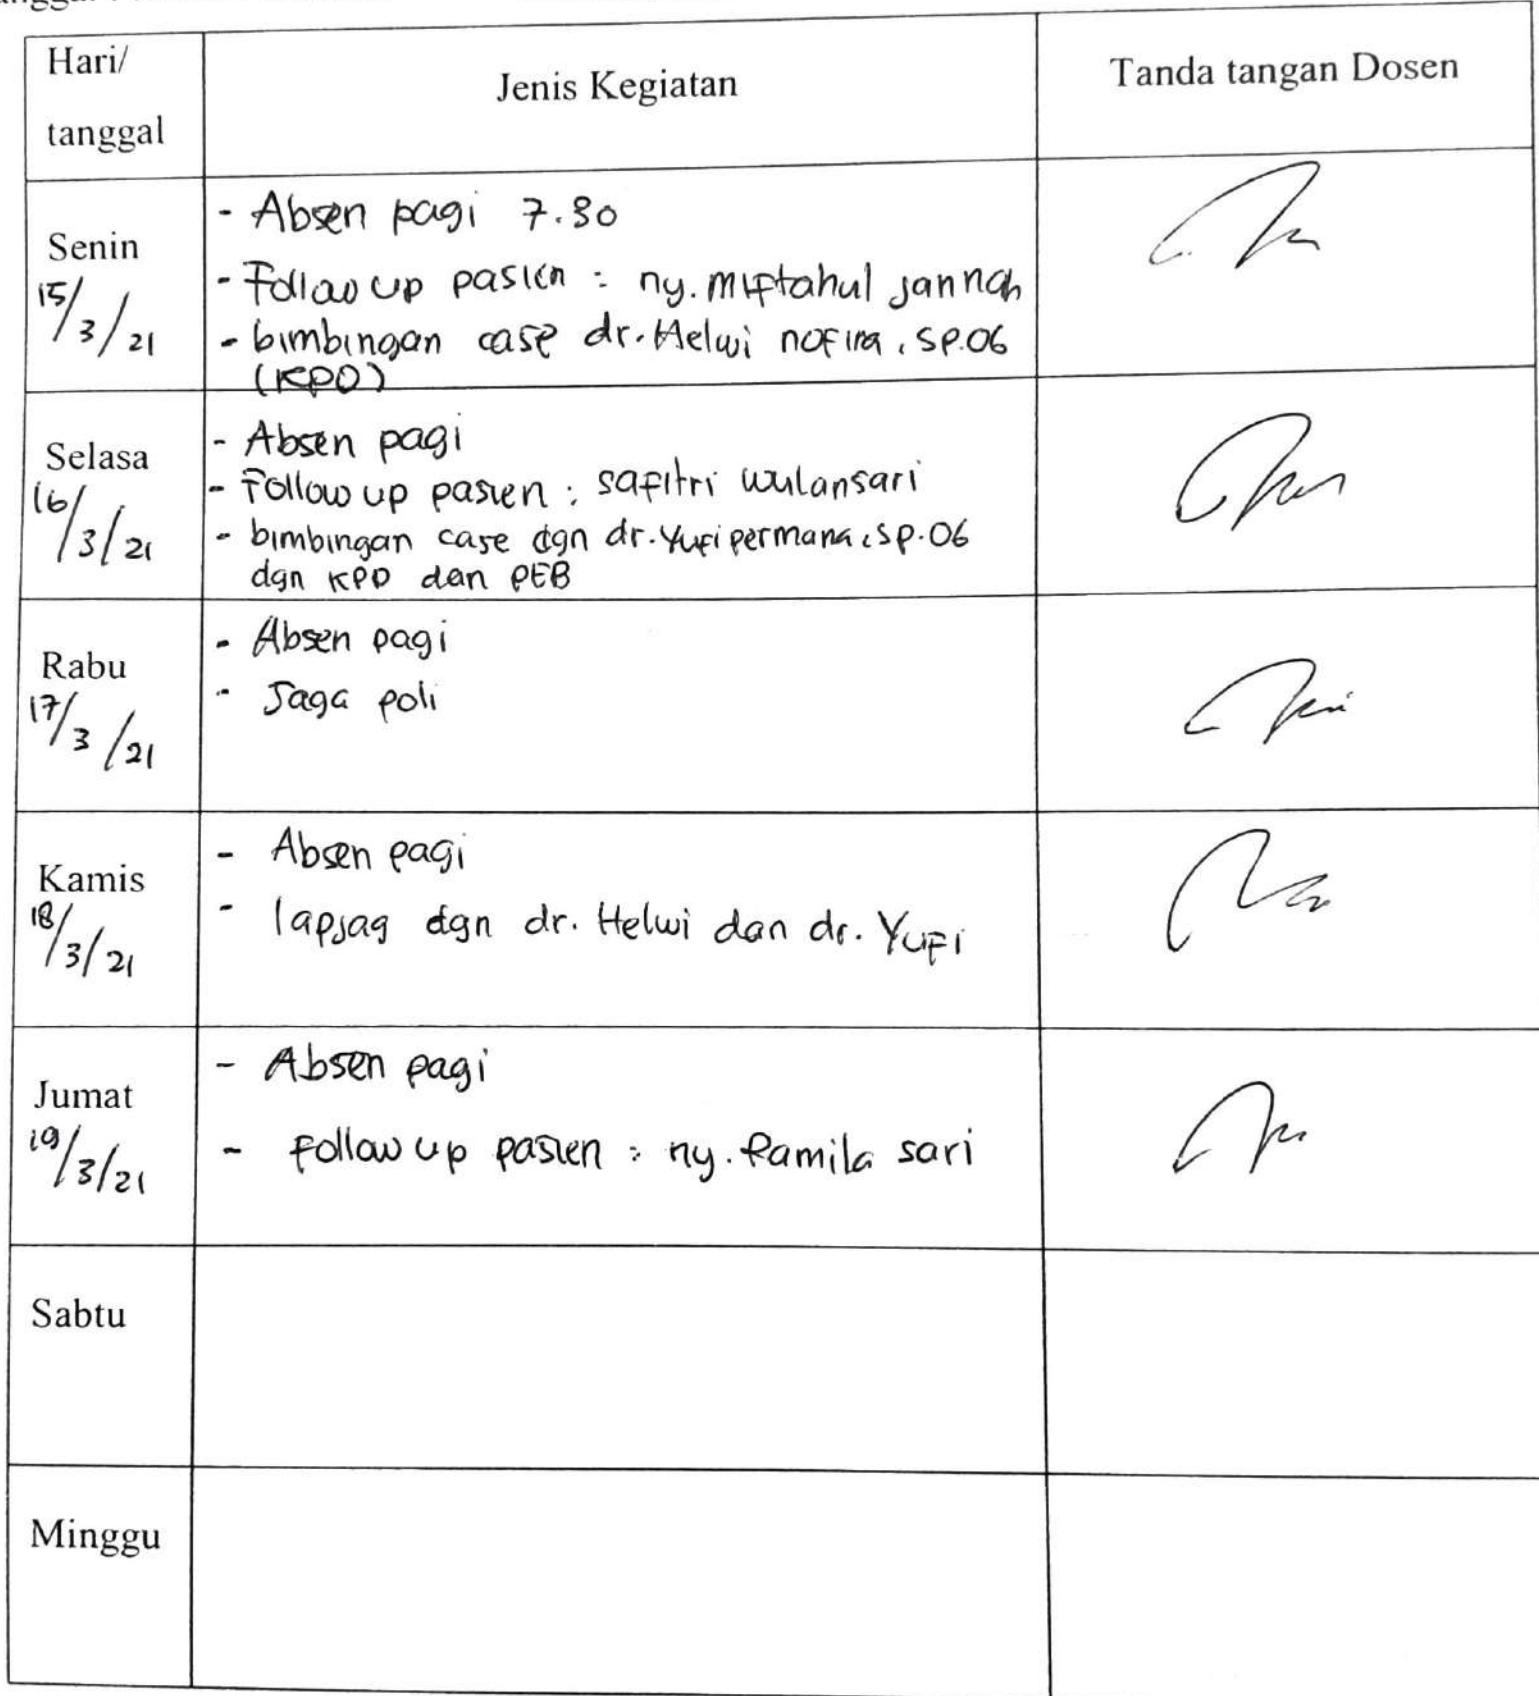 Hari/
tanggal
Jenis Kegiatan
Tanda tangan Dosen
Senin
15/3/21
- Absen pagi 7.30
- Follow up pasien : ny. Miftahul Jannah
- bimbingan case dr. Helwi nofira, SP.OG
(KPD)
Selasa
16/3/21
- Absen pagi
- Follow up pasien : safitri wulansari
- bimbingan case dgn dr. Yufi permana, SP.OG
dgn KPD dan PEB
Rabu
17/3/21
- Absen pagi
- Jaga poli
Kamis
18/3/21
- Absen pagi
- lapjag dgn dr. Helwi dan dr. Yufi
Jumat
19/3/21
- Absen pagi
- Follow up pasien : ny. Ramila sari
Sabtu
Minggu